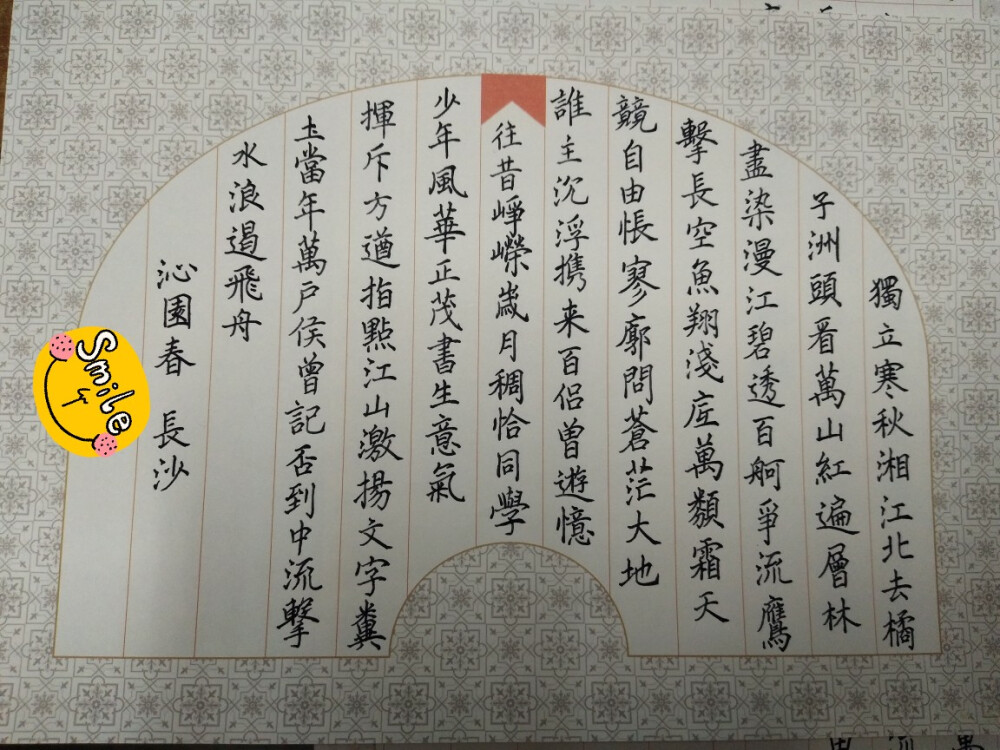 獨立寒秋湘江北去橘
子洲頭看萬山紅遍層林
盡染漫江碧透百舸爭流鷹
擊長空魚翔淺底萬類霜天
競自由悵寥廓問蒼茫大地
誰主沉浮携来百侣曾遊憶
往昔崢嶸歲月稠恰同學
少年風華正茂書生意氣
揮斥方遒指點江山激揚文字糞
土當年萬戶侯曾記否到中流擊
水浪遏飛舟
沁園春 長沙
Smile